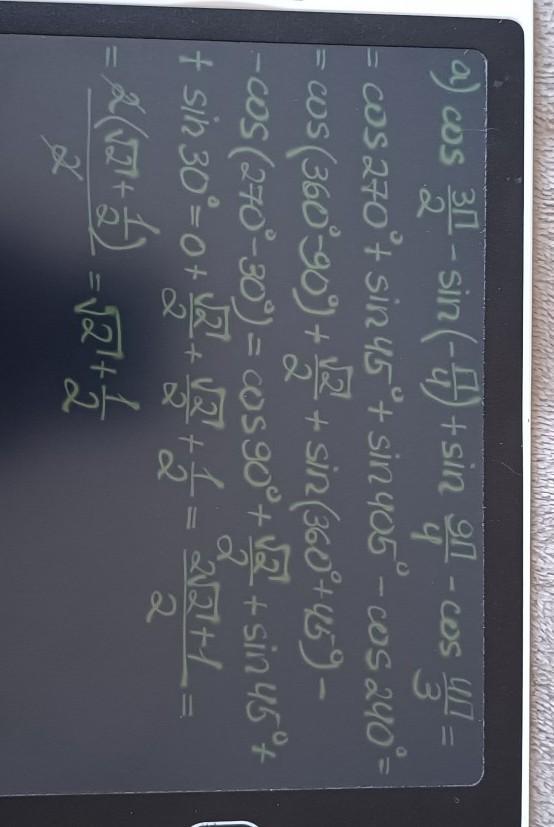 а) cos 3П/2 - sin(-П/4) + sin 9П/4 - cos 4П/3 =
= cos 270° + sin 45° + sin 405° - cos 240° =
= cos(360°-90°) + √2/2 + sin(360°+45°) -
- cos(270°-30°) = cos 90° + √2/2 + sin 45° +
+ sin 30° = 0 + √2/2 + √2/2 + 1/2 = 2√2+1/2 =
= 2(√2 + 1/2)/2 = √2 + 1/2